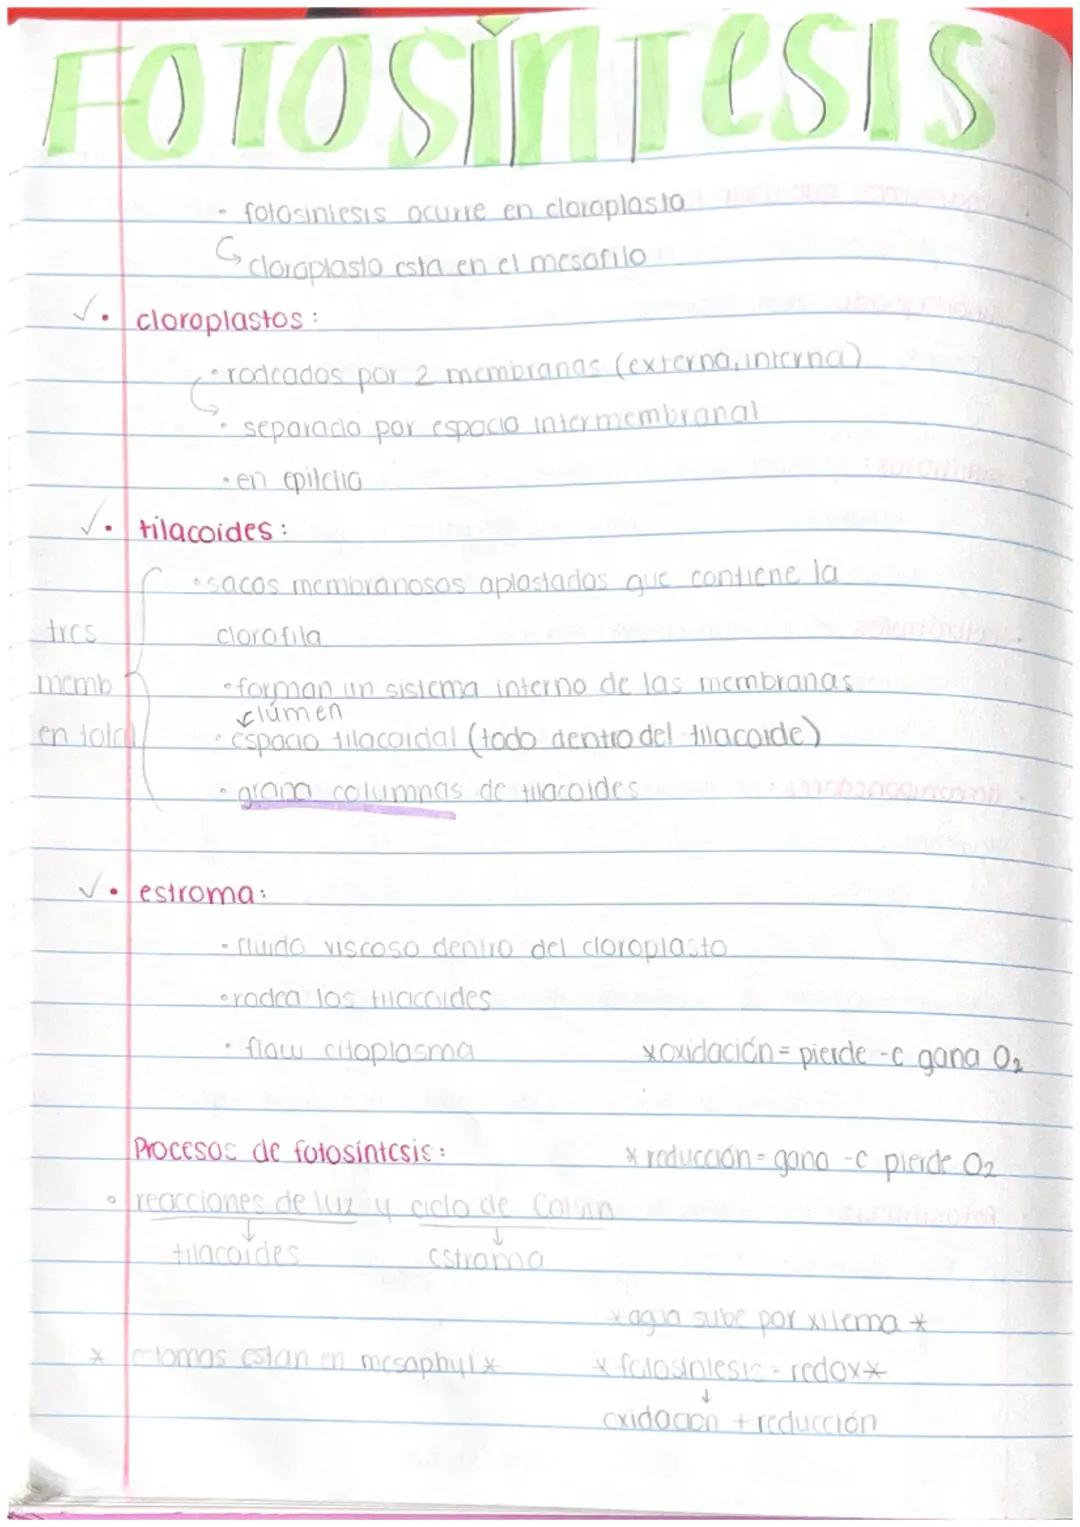 FOTOSíNTESIS
· fotosintesis ocurre en cloroplasto
cloroplasto esta en el mesofilo
✓ · cloroplastos:
· rodeados por 2 membranas (externa, interna)
· separado por espacio intermembranal
· en epitelio
✓ · tilacoides:
· sacos membranosos aplastados que contiene la
clorofila
tres
memb
en total
· forman un sistema interno de las membranas
lúmen
· espacio tilacoidal (todo dentro del tilacoide)
· grana columnas de tilacoides
✓ · estroma:
· fluido viscoso dentro del cloroplasto
· rodea los tilacoides
· citoplasma
*oxidación = pierde -e gana O₂
Procesos de fotosíntesis:
* reducción = gana -e pierde O₂
· reacciones de luz y ciclo de Calvin
tilacoides estroma
* agua sube por xilema *
* estan en mesophyl *
* fotosintesis = redox *
oxidación + reducción